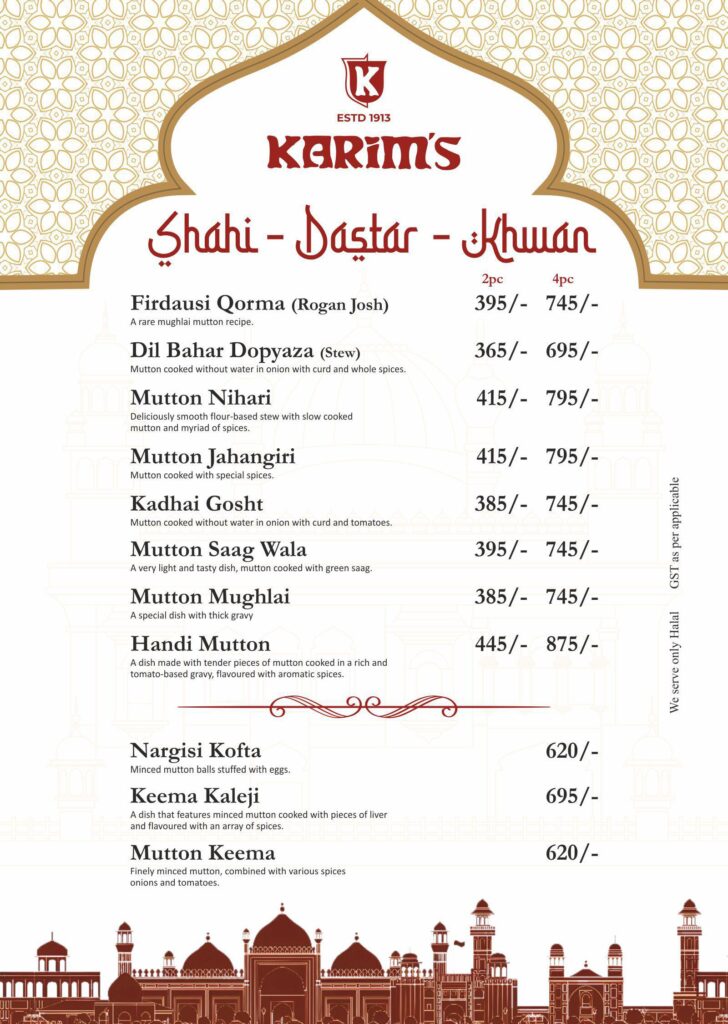 K
ESTD 1913
KARIM'S
Shahi - Dastar - Khwan
2pc 4pc
Firdausi Qorma (Rogan Josh) 395/- 745/-
A rare mughlai mutton recipe.
Dil Bahar Dopyaza (Stew) 365/- 695/-
Mutton cooked without water in onion with curd and whole spices.
Mutton Nihari 415/- 795/-
Deliciously smooth flour-based stew with slow cooked
mutton and myriad of spices.
Mutton Jahangiri 415/- 795/-
Mutton cooked with special spices.
Kadhai Gosht 385/- 745/-
Mutton cooked without water in onion with curd and tomatoes.
Mutton Saag Wala 395/- 745/-
A very light and tasty dish, mutton cooked with green saag.
Mutton Mughlai 385/- 745/-
A special dish with thick gravy
Handi Mutton 445/- 875/-
A dish made with tender pieces of mutton cooked in a rich and
tomato-based gravy, flavoured with aromatic spices.
Nargisi Kofta 620/-
Minced mutton balls stuffed with eggs.
Keema Kaleji 695/-
A dish that features minced mutton cooked with pieces of liver
and flavoured with an array of spices.
Mutton Keema 620/-
Finely minced mutton, combined with various spices
onions and tomatoes.
We serve only Halal GST as per applicable